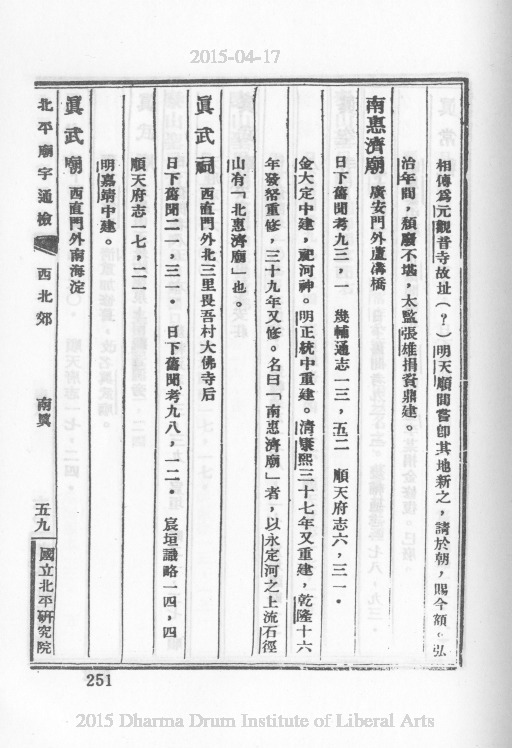 2015-04-17
相傳爲元觀音寺故址（？）明天順間嘗卽其地新之，請於朝，賜今額。弘
治年間，頹廢不堪，太監張雄捐貲鼎建。
南惠濟廟　廣安門外蘆溝橋
日下舊聞考九三，一　畿輔通志一三，五二　順天府志六，三一。
金大定中建，祀河神。明正統中重建。清康熙三十七年又重建，乾隆十六
年發帑重修，三十九年又修。名曰「南惠濟廟」者，以永定河之上流石徑
山有「北惠濟廟」也。
眞武祠　西直門外北三里畏吾村大佛寺后
日下舊聞二一，三一。日下舊聞考九八，一二。宸垣識略一四，四
順天府志一七，二一
明嘉靖中建。
眞武廟　西直門外南海淀
北平廟宇通檢　西北郊　南眞　五九　國立北平研究院
251
2015 Dharma Drum Institute of Liberal Arts